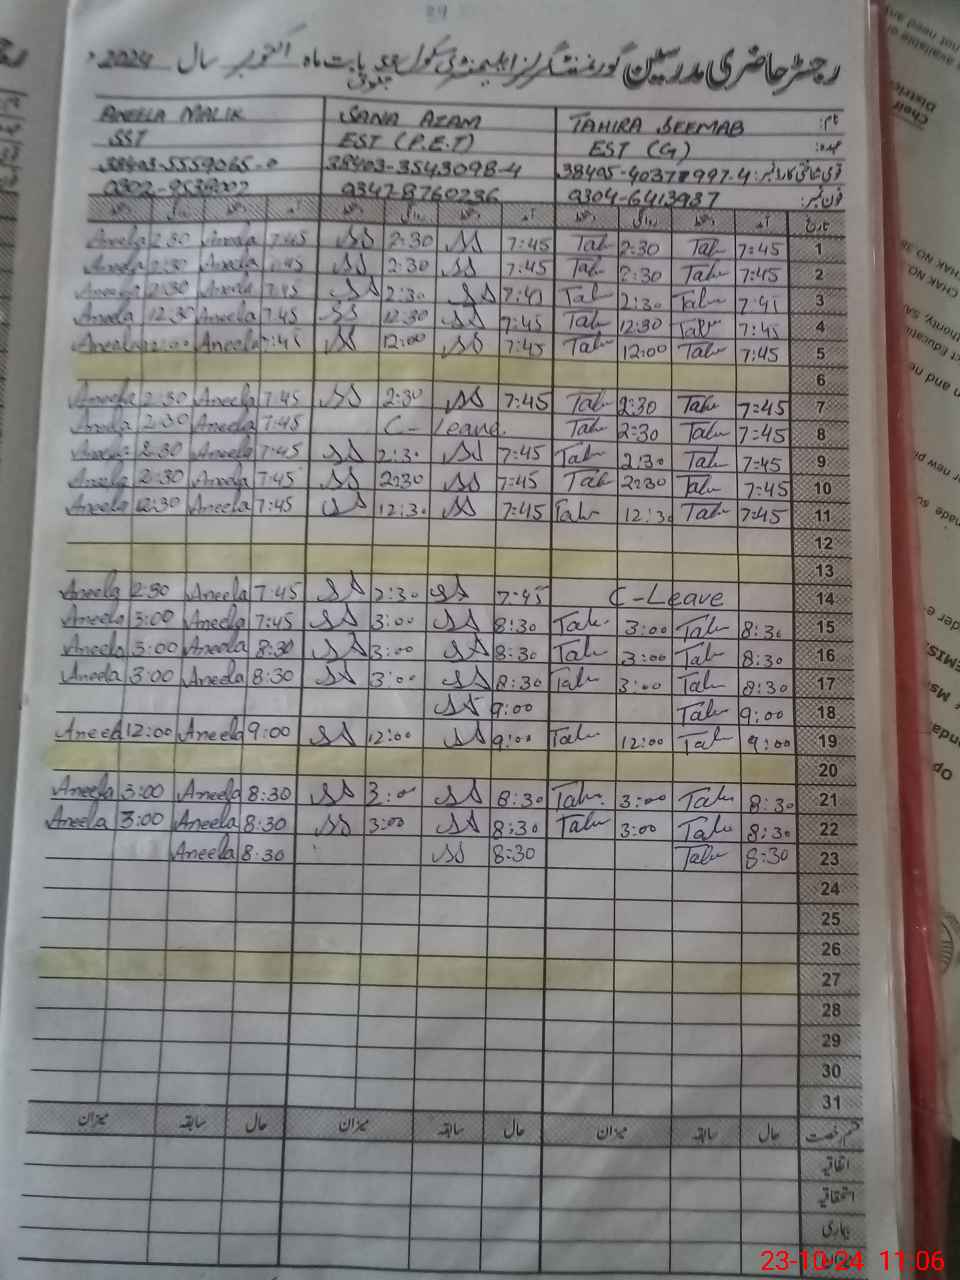 29
رجسٹر حاضری مدرسین گورنمنٹ گرلز ایلیمنٹری سکول بابت ماہ اکتوبر سال 2024ء
نام: TAHIRA SEEMAB SANA AZAM ANEELA MALIK
عہدہ: EST (G) EST (P.E.T) SST
قومی شناختی کارڈ نمبر: 38403-3543098-4
فون نمبر: 0304-6413937 0347-8760236
تاریخ آمد دستخط روانگی دستخط آمد دستخط روانگی دستخط آمد دستخط روانگی دستخط
1 7:45 Tah 2:30 Tah 7:45 SS 2:30 SS 7:45 Aneela 2:30 Aneela
2 7:45 Tah 2:30 Tah 7:45 SS 2:30 SS 7:45 Aneela 2:30 Aneela
3 7:45 Tah 2:30 Tah 7:45 SS 2:30 SS 7:45 Aneela 2:30 Aneela
4 7:45 Tah 12:30 Tah 7:45 SS 12:30 SS 7:45 Aneela 12:30 Aneela
5 7:45 Tah 12:00 Tah 7:45 SS 12:00 SS 7:45 Aneela 12:00 Aneela
6
7 7:45 Tah 2:30 Tah 7:45 SS 2:30 SS 7:45 Aneela 2:30 Aneela
8 7:45 Tah 2:30 Tah C-Leave 7:45 Aneela 2:30 Aneela
9 7:45 Tah 2:30 Tah 7:45 SS 2:30 SS 7:45 Aneela 2:30 Aneela
10 7:45 Tah 2:30 Tah 7:45 SS 2:30 SS 7:45 Aneela 2:30 Aneela
11 7:45 Tah 12:30 Tah 7:45 SS 12:30 SS 7:45 Aneela 12:30 Aneela
12
13
14 C-Leave 7:45 SS 2:30 SS 7:45 Aneela 2:30 Aneela
15 8:30 Tah 3:00 Tah 8:30 SS 3:00 SS 7:45 Aneela 3:00 Aneela
16 8:30 Tah 3:00 Tah 8:30 SS 3:00 SS 8:30 Aneela 3:00 Aneela
17 8:30 Tah 3:00 Tah 8:30 SS 3:00 SS 8:30 Aneela 3:00 Aneela
18 9:00 Tah 9:00 SS
19 9:00 Tah 12:00 Tah 9:00 SS 12:00 SS 9:00 Aneela 12:00 Aneela
20
21 8:30 Tah 3:00 Tah 8:30 SS 3:00 SS 8:30 Aneela 3:00 Aneela
22 8:30 Tah 3:00 Tah 8:30 SS 3:00 SS 8:30 Aneela 3:00 Aneela
23 8:30 Tah 8:30 SS 8:30 Aneela
24
25
26
27
28
29
30
31
قسم رخصت حال سابقہ میزان حال سابقہ میزان حال سابقہ میزان
اتفاقیہ
استحقاقیہ
بیماری
23-10-24 11:06